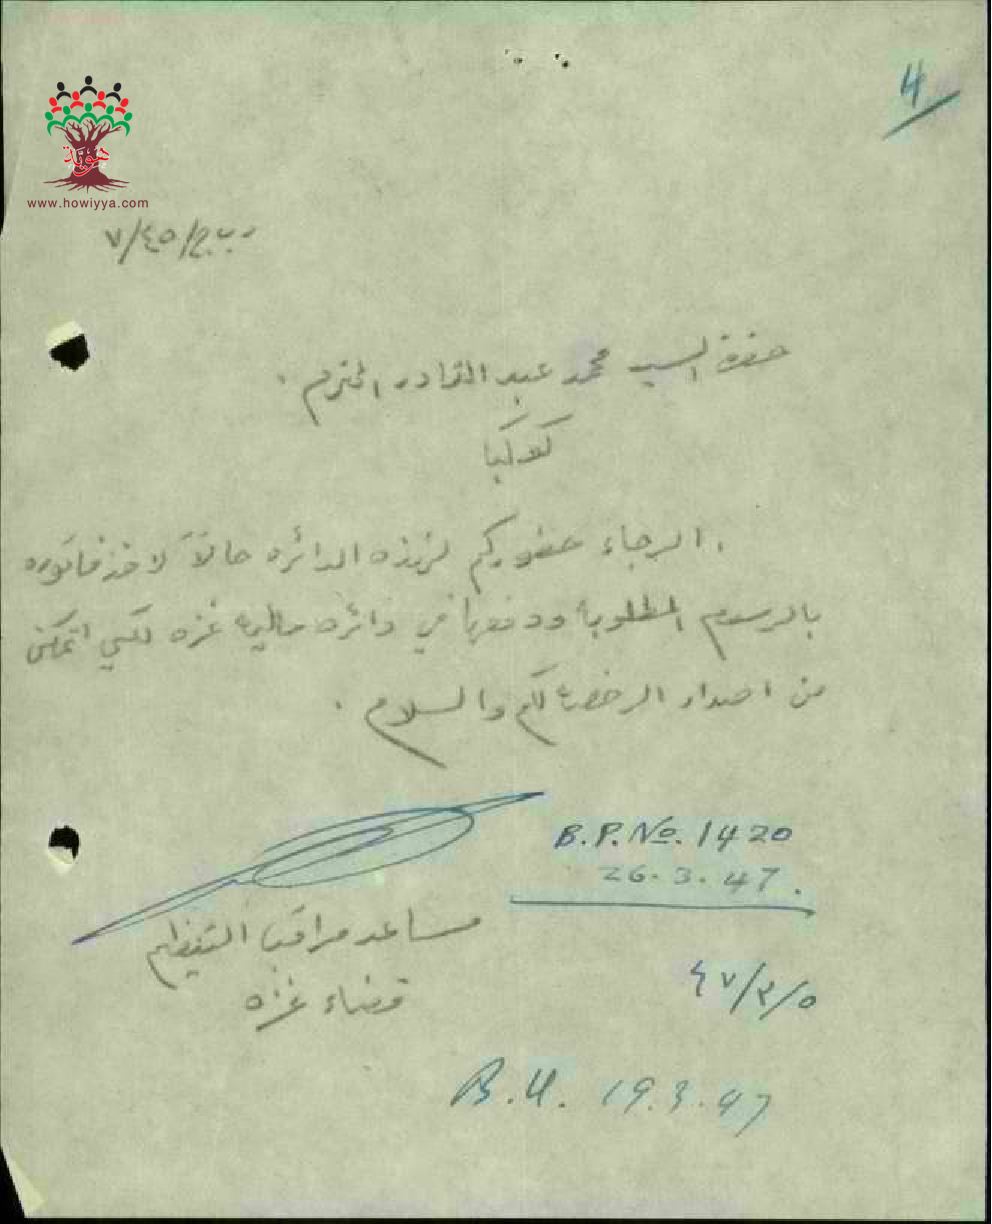 4
هوية
www.howiyya.com
ر ب ج/٤٥/٧
حضرة السيد محمد عبد القادر المحترم .
كوكبا
الرجاء حضوركم لهذه الدائره حالاً لاخذ فاتوره
بالرسوم المطلوبة ودفعها في دائرة مالية غزه لكي اتمكن
من اصدار الرخصة لكم والسلام .
B.P.No. 1420
26.3.47.
مساعد مراقب التنظيم
قضاء غزه
٤٧/٣/٥
B.U. 19.3.47